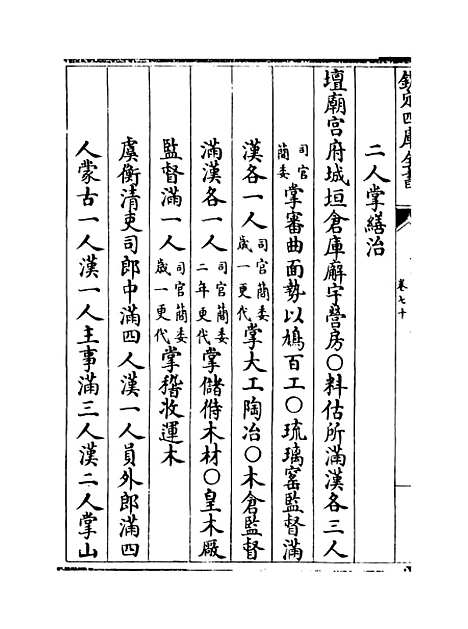 欽定四庫全書
卷七十
二人掌繕治
壇廟宫府城垣倉庫廨宇營房○料估所滿漢各三人
司官簡委掌審曲面勢以鳩百工○琉璃窰監督滿
漢各一人司官簡委歲一更代掌大工陶冶○木倉監督
滿漢各一人司官簡委二年更代掌儲偫木材○皇木厰
監督滿一人司官簡委歲一更代掌稽收運木
虞衡清吏司郎中滿四人漢一人員外郎滿四
人蒙古一人漢一人主事滿三人漢二人掌山